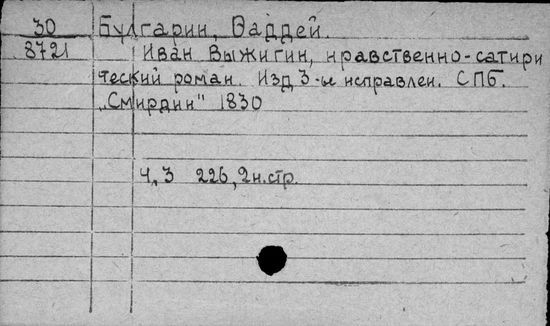 30 Булгарин, Ѳаддей.
8721 Иван Выжигин, нравственно-сатири
ческий роман. Изд 3-ье исправлен. СПб.
„Смирдин" 1830
ч, 3 226, 2н.стр.